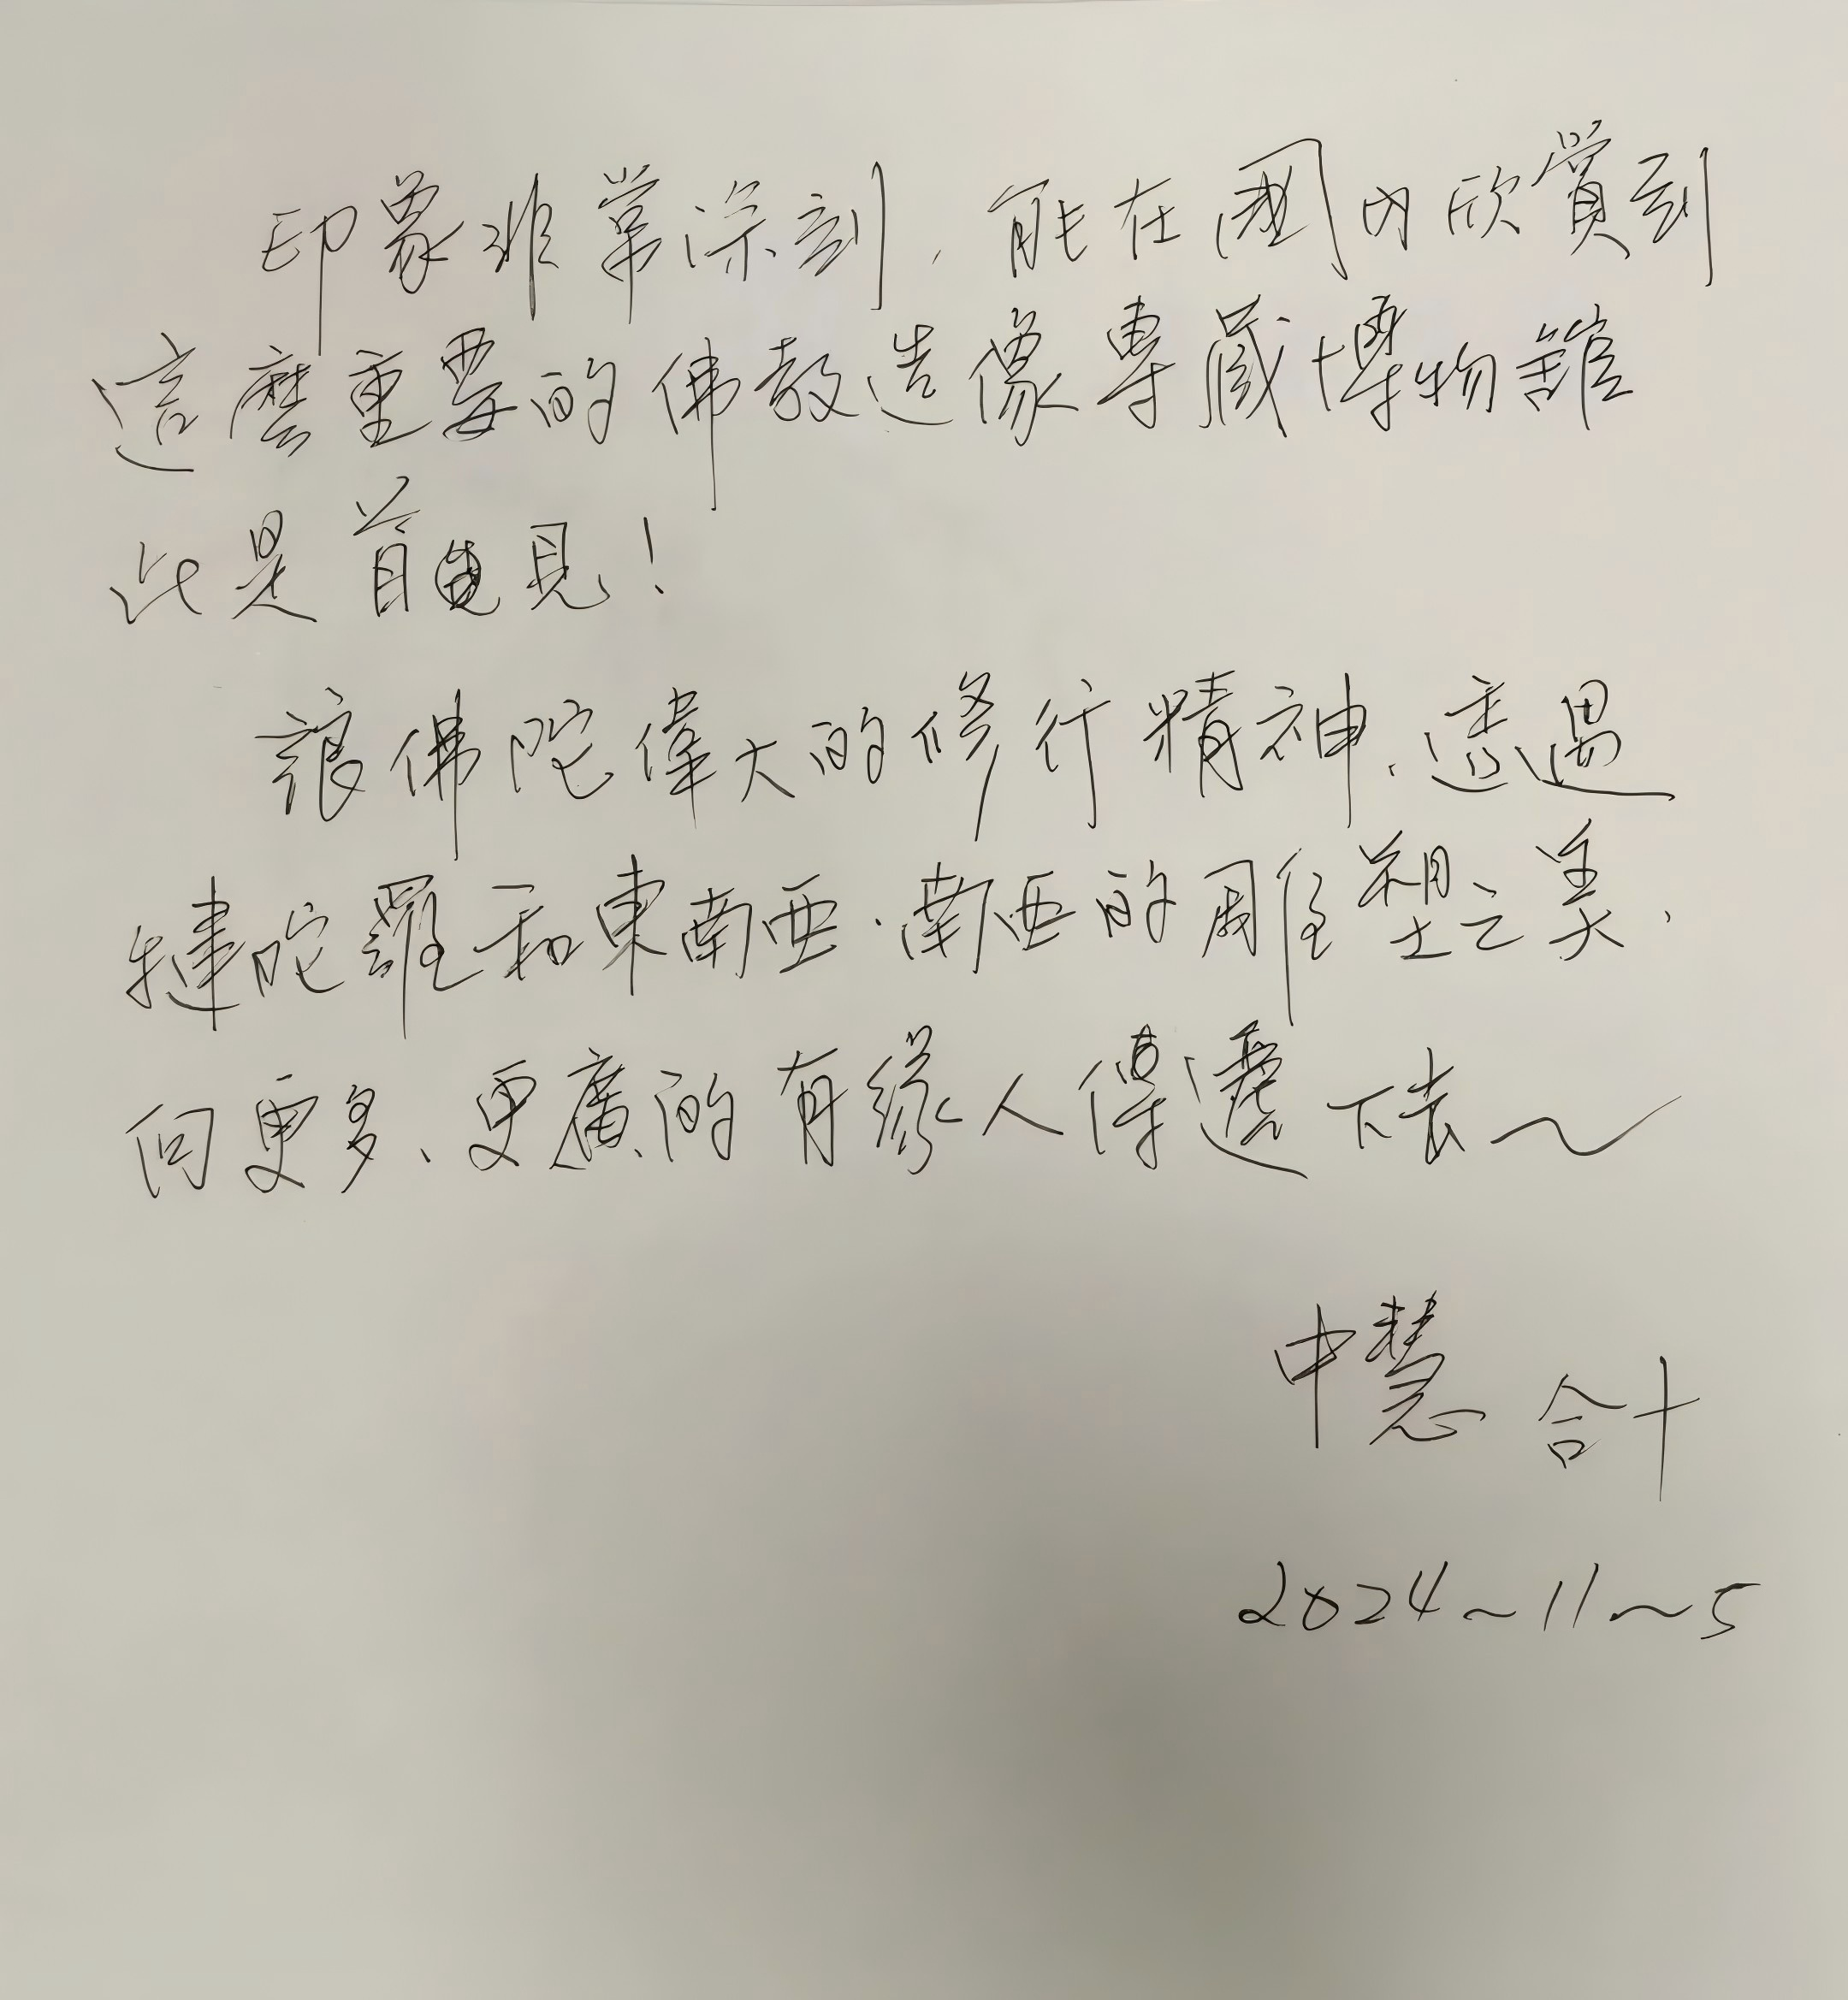 印象非常深刻，能在國內欣賞到
這麼重要的佛教造像專藏博物館
此是首見！
讓佛陀偉大的修行精神、透過
犍陀羅和東南亞、南亞的雕塑之美、
向更多、更廣的有緣人傳遞下去～
中慧 合十
2024~11~5